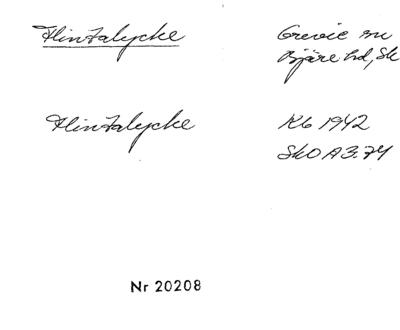 Flintalycke
Grevie sn
Bjäre hd, Sk
Flintalycke
Kb 1942
SkO A3:74
Nr 20208